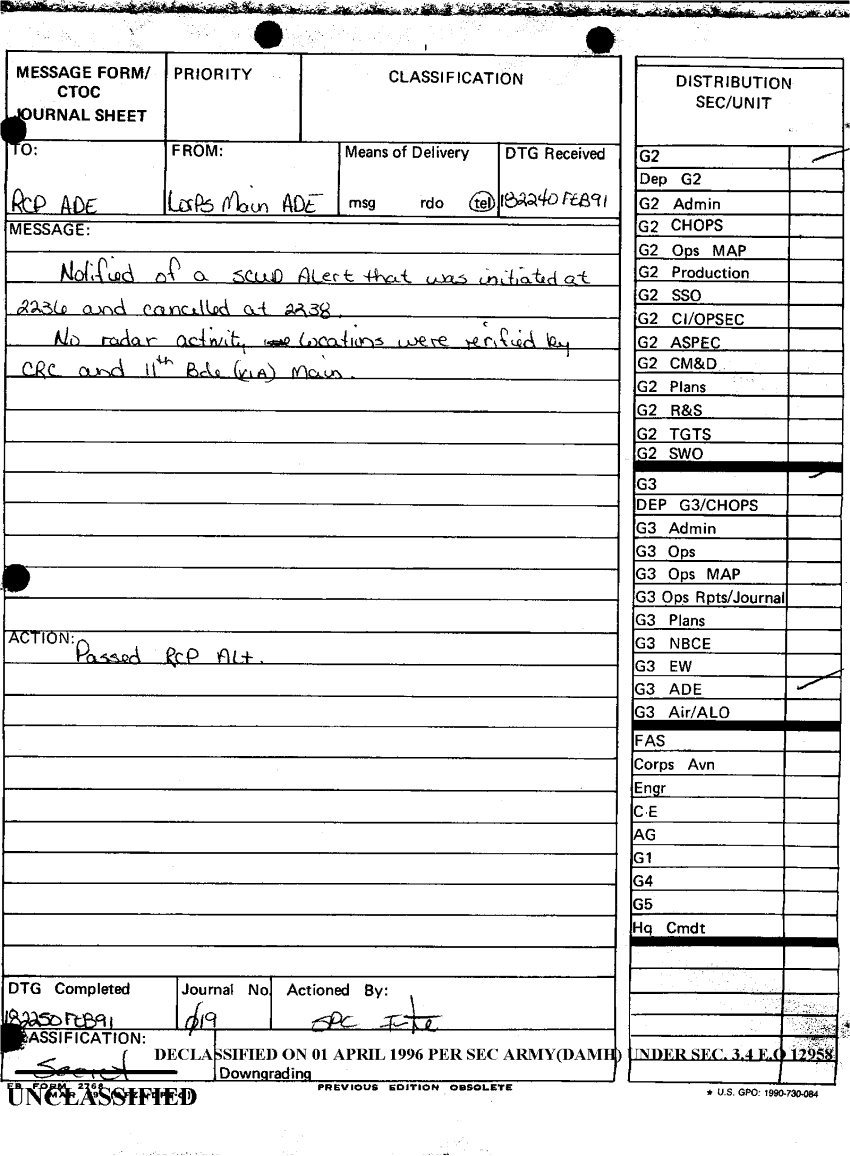 MESSAGE FORM/
CTOC
JOURNAL SHEET
PRIORITY
CLASSIFICATION
TO:
RCP ADE
FROM:
Corps Main ADE
Means of Delivery
msg rdo tel
DTG Received
182240FEB91
MESSAGE:
Notified of a SCUD Alert that was initiated at
2236 and cancelled at 2238.
No radar activity locations were verified by
CRC and 11th Bde (VIA) Main.
ACTION:
Passed RCP Alt.
DTG Completed
182250FEB91
Journal No.
019
Actioned By:
SPC
CLASSIFICATION:
Secret
DECLASSIFIED ON 01 APRIL 1996 PER SEC ARMY(DAMH) UNDER SEC. 3.4 E.O 12958
Downgrading
FB FORM 2768
UNCLASSIFIED
PREVIOUS EDITION OBSOLETE
DISTRIBUTION
SEC/UNIT
G2
Dep G2
G2 Admin
G2 CHOPS
G2 Ops MAP
G2 Production
G2 SSO
G2 CI/OPSEC
G2 ASPEC
G2 CM&D
G2 Plans
G2 R&S
G2 TGTS
G2 SWO
G3
DEP G3/CHOPS
G3 Admin
G3 Ops
G3 Ops MAP
G3 Ops Rpts/Journal
G3 Plans
G3 NBCE
G3 EW
G3 ADE
G3 Air/ALO
FAS
Corps Avn
Engr
C-E
AG
G1
G4
G5
Hq Cmdt
* U.S. GPO: 1990-730-084